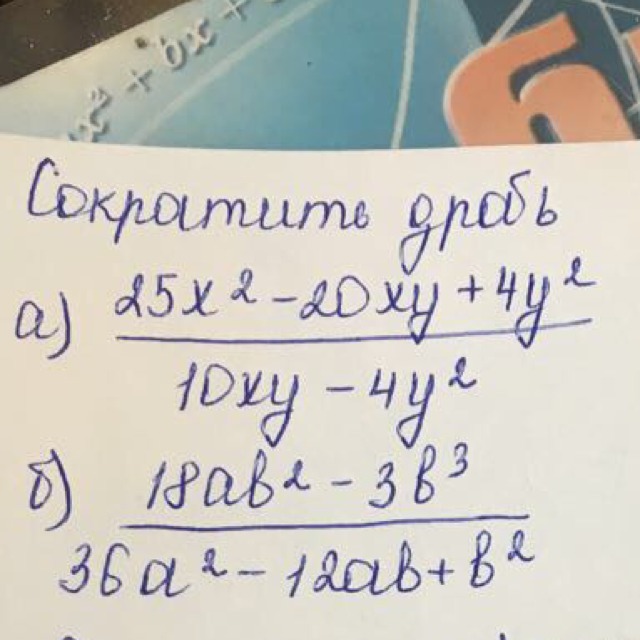 x² + bx +
Сократить дробь
а) 25x² - 20xy + 4y² / 10xy - 4y²
б) 18ab² - 3b³ / 36a² - 12ab + b²